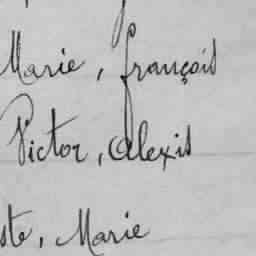 Marie, françois
Victor, Alexis
ste, Marie